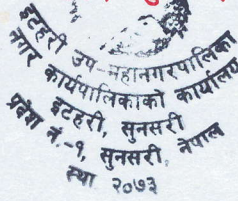 इटहरी उप-महानगरपालिका
नगर कार्यपालिकाको कार्यालय
इटहरी, सुनसरी
प्रदेश नं.-१, सुनसरी, नेपाल
स्था २०७३